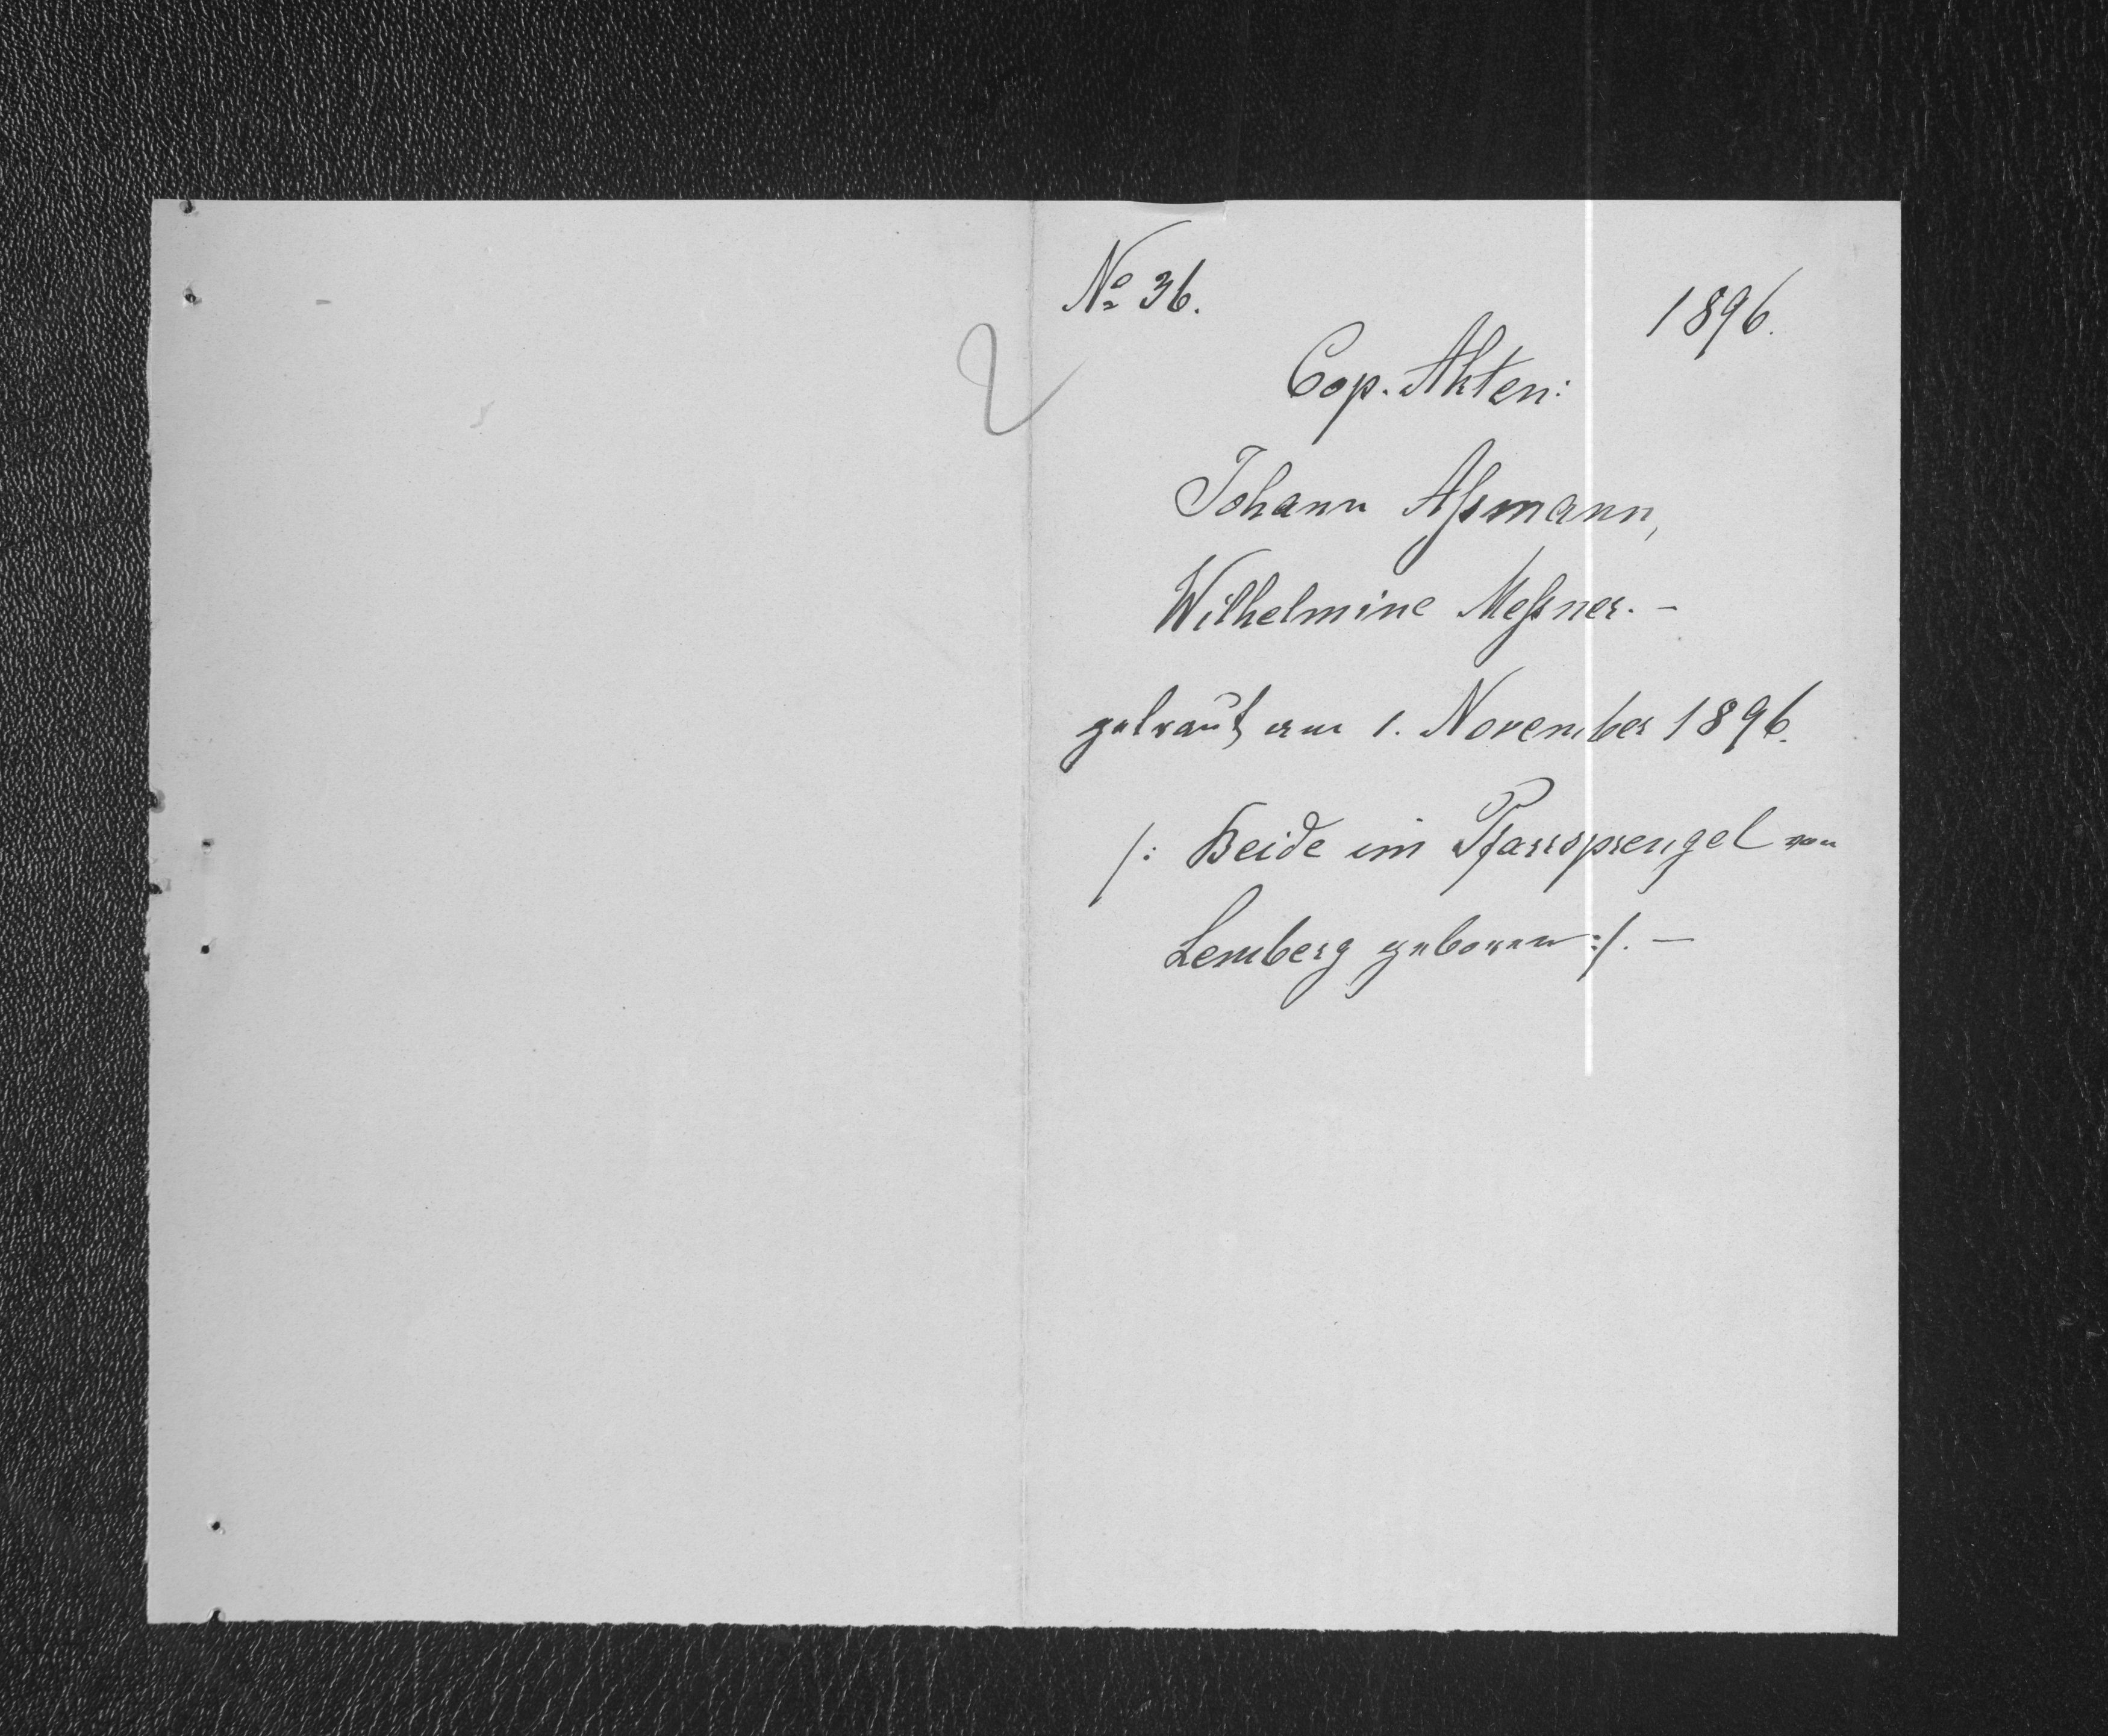 № 36.
1896.
2
Cop. Akten:
Johann Aßmann,
Wilhelmine Meßner. –
getraut am 1. November 1896.
/: Beide im Pfarrsprengel von
Lemberg geboren :/. –